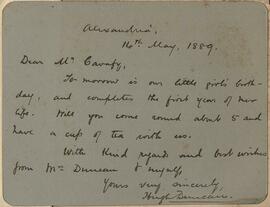 Alexandria,
16th May, 1889.
Dear Mr Cavafy,
To-morrow is our little girl's birth-
day, and completes the first year of her
life. Will you come round about 5 and
have a cup of tea with us.
With kind regards and best wishes
from Mrs Duncan & myself,
Yours very sincerely,
Hugh Duncan.